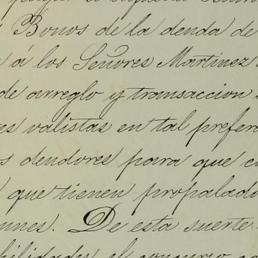 Bonos de la denda de
á los Señores Martinez
de arreglo y transaccion
valistas en tal prefer
dendores para que c
que tienen propalad
De esta suerte